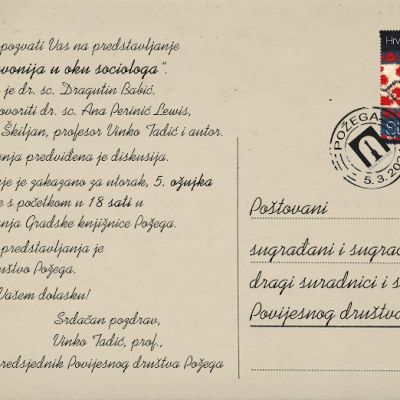 pozvati Vas na predstavljanje
vonija u oku sociologa".
je dr. sc. Dragutin Babić.
ovoriti dr. sc. Ana Perinić Lewis,
Škiljan, profesor Vinko Tadić i autor.
anja predviđena je diskusija.
je je zakazano za utorak, 5. ožujka
e s početkom u 18 sati u
anja Gradske knjižnice Požega.
predstavljanja je
uštvo Požega.
Vašem dolasku!
Srdačan pozdrav,
Vinko Tadić, prof.,
redsjednik Povijesnog društva Požega
Hrv
POŽEGA
5.3.20
Poštovani
sugrađani i sugrađ
dragi suradnici i s
Povijesnog društva